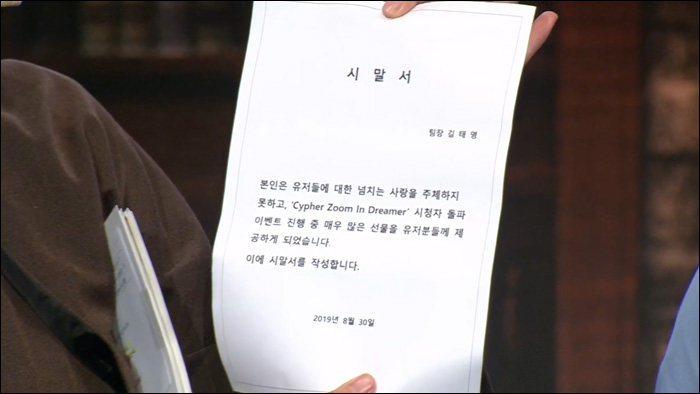 시 말 서
팀장 길 태 영
본인은 유저들에 대한 넘치는 사랑을 주체하지
못하고, 'Cypher Zoom In Dreamer' 시청자 돌파
이벤트 진행 중 매우 많은 선물을 유저분들께 제
공하게 되었습니다.
이에 시말서를 작성합니다.
2019년 8월 30일